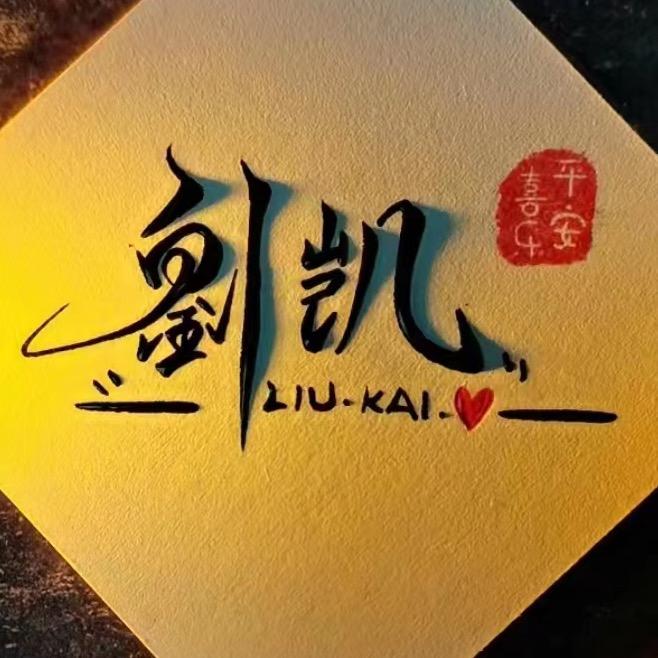 劉凯
LIU-KAI-
平安
喜乐